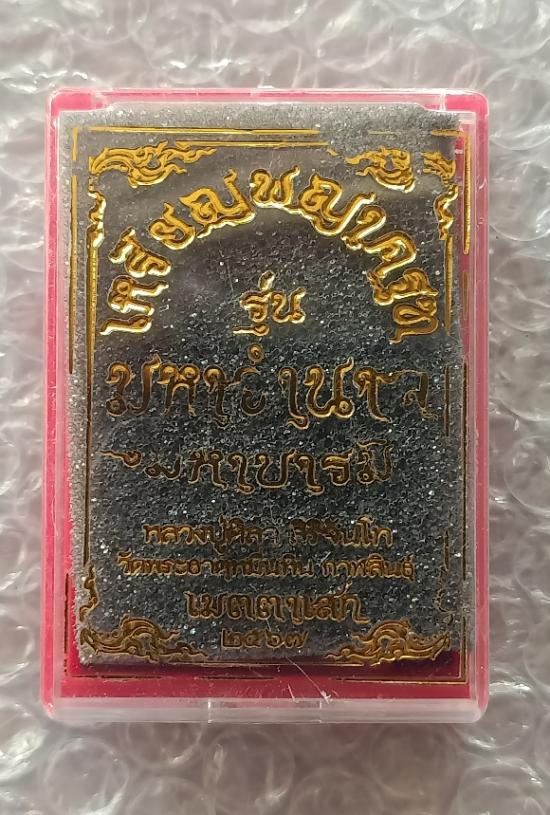 เหรียญพญาครุฑ
รุ่น
มหาอำนาจ
มหาบารมี
หลวงปู่ศิลา สิริจันโท
วัดพระธาตุหมื่นหิน กาฬสินธุ์
เมตตาเสก
๒๕๖๗